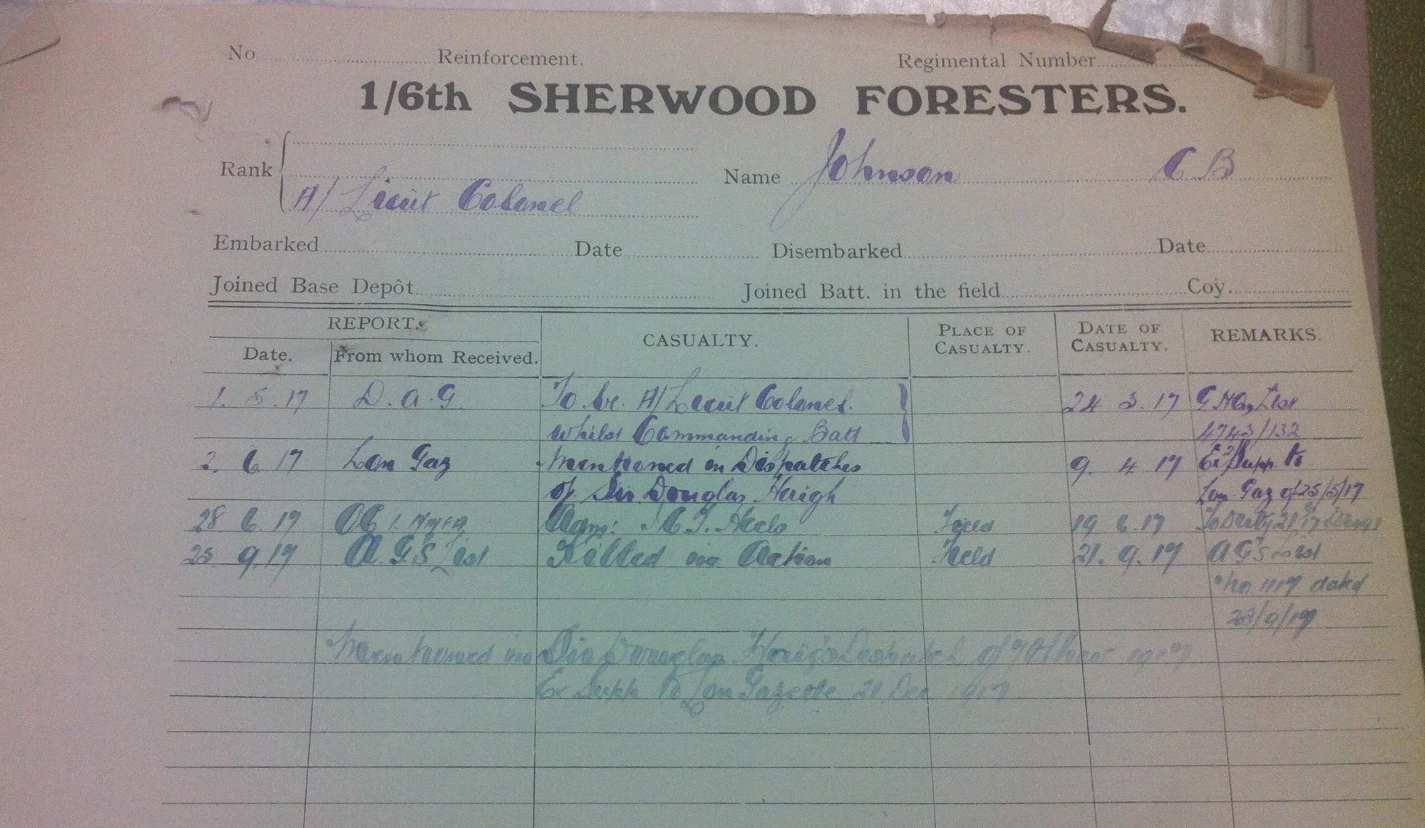 No Reinforcement. Regimental Number
1/6th SHERWOOD FORESTERS.
Rank A/ Lieut Colonel Name Johnson C B
Embarked Date Disembarked Date
Joined Base Depôt Joined Batt. in the field Coy.
REPORT. CASUALTY. PLACE OF CASUALTY. DATE OF CASUALTY. REMARKS.
Date. From whom Received.
1. 5. 17 D.A.G. To be A/ Lieut Colonel. 24 3. 17 G H Q List
whilst Commanding Batt 4743/132
2. 6 17 Lon Gaz Mentioned in Dispatches 9. 4 17 Ex Supp. to
of Sir Douglas Haigh Lon. Gaz of 25/5/17
28 6. 17 OC Field 19 6. 17 To Duty 21
25 9.17 A.G.S List Killed in Action Field 21. 9. 17 A G S List
No 1117 dated
23/9/17
Mentioned in Sir Douglas Haig's Despatch of 7th
Ex Supp to Lon Gazette 21 Dec 1917